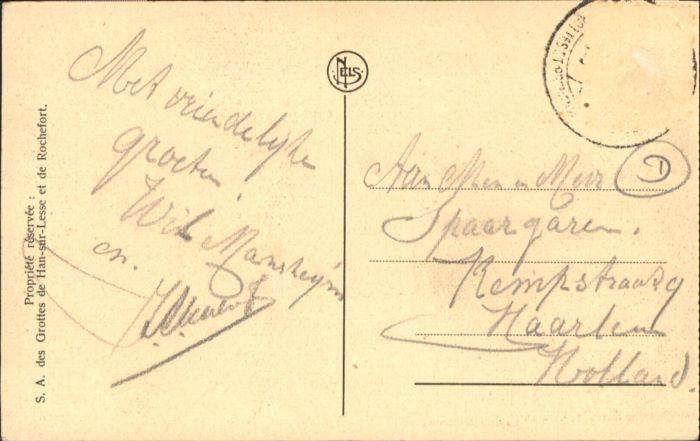 Propriété réservée :
S. A. des Grottes de Han-sur-Lesse et de Rochefort.
NELS
Met vriendelijke
groeten
Wil
en.
Aan Men en Mevr
Spaargaren.
Kempstraat 29
Haarlem
Holland.
1